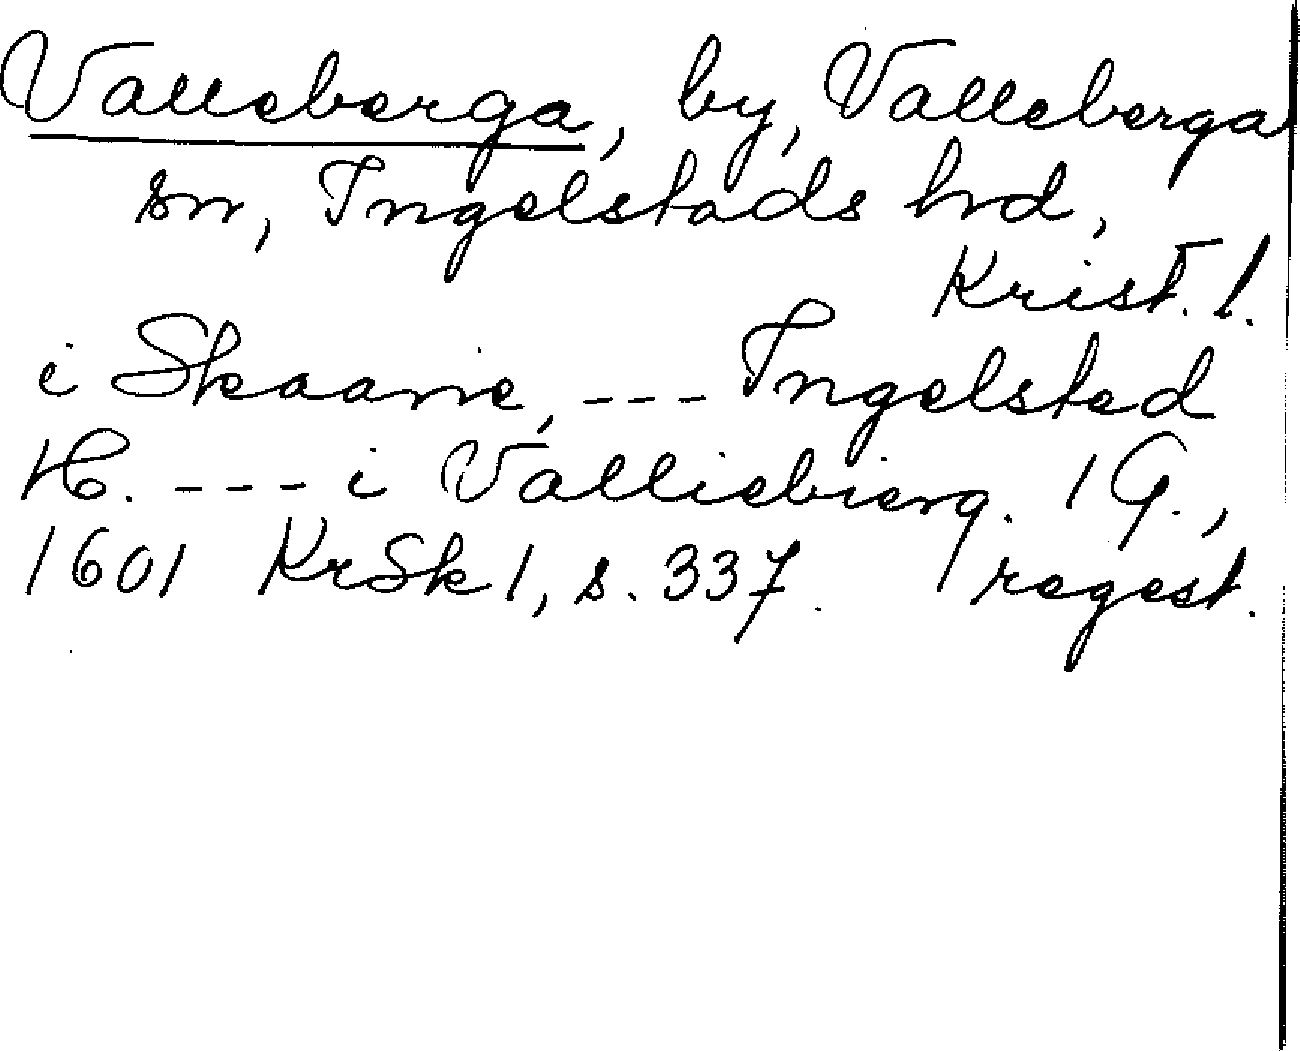 Valleberga, by, Valleberga
sn, Ingelstads hrd,
Krist. l.
i Skaane, --- Ingelsted
H. --- i Valliebierg. 1 G.,
1601 KrSk 1, s. 337. regest.